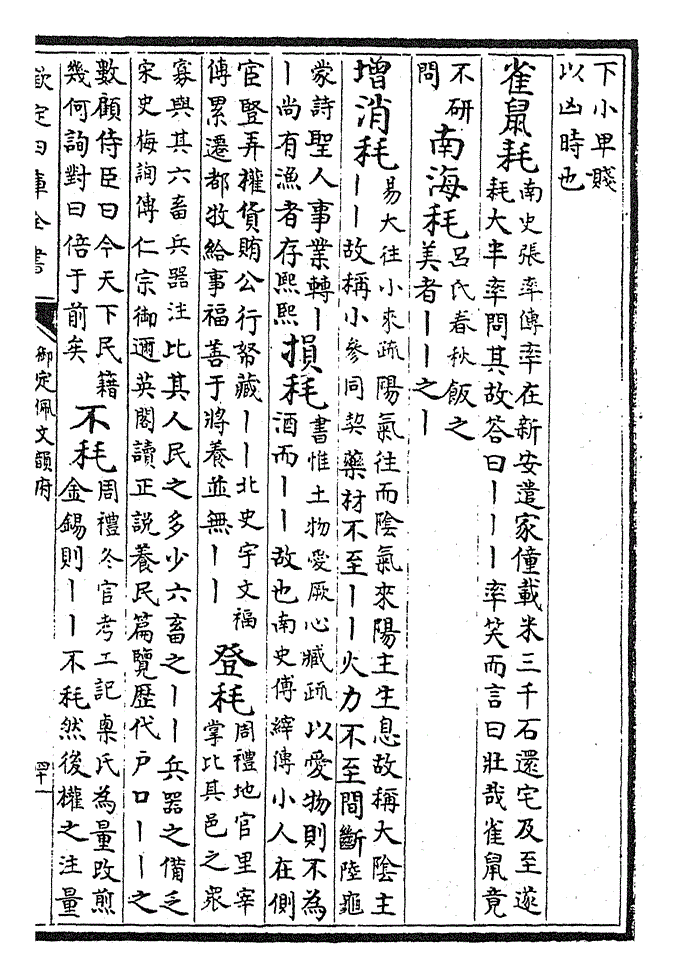 下小卑賤
以凶時也
雀鼠耗
南史張率傳率在新安遣家僮載米三千石還宅及至遂
耗大半率問其故答曰丨丨丨率笑而言曰壯哉雀鼠竟
不研
問
南海耗
呂氏春秋飯之
美者丨丨之丨
增消耗
易大往小來疏陽氣往而陰氣來陽主生息故稱大陰主
丨丨故稱小參同契藥材不至丨丨火力不至間斷陸龜
蒙詩聖人事業轉丨
丨尚有漁者存熙熙
損耗
書惟土物愛厥心臧疏以愛物則不為
酒而丨丨故也南史傅縡傳小人在側
宦豎弄權貨賄公行帑藏丨丨北史宇文福
傳累遷都牧給事福善于將養並無丨丨
登耗
周禮地官里宰
掌比其邑之眾
寡與其六畜兵器注比其人民之多少六畜之丨丨兵器之備乏
宋史梅詢傳仁宗御邇英閣讀正説養民篇覽歴代户口丨丨之
數顧侍臣曰今天下民籍
幾何詢對曰倍于前矣
不耗
周禮冬官考工記㮚氏為量改煎
金錫則丨丨不耗然後權之注量
欽定四庫全書
御定佩文韻府